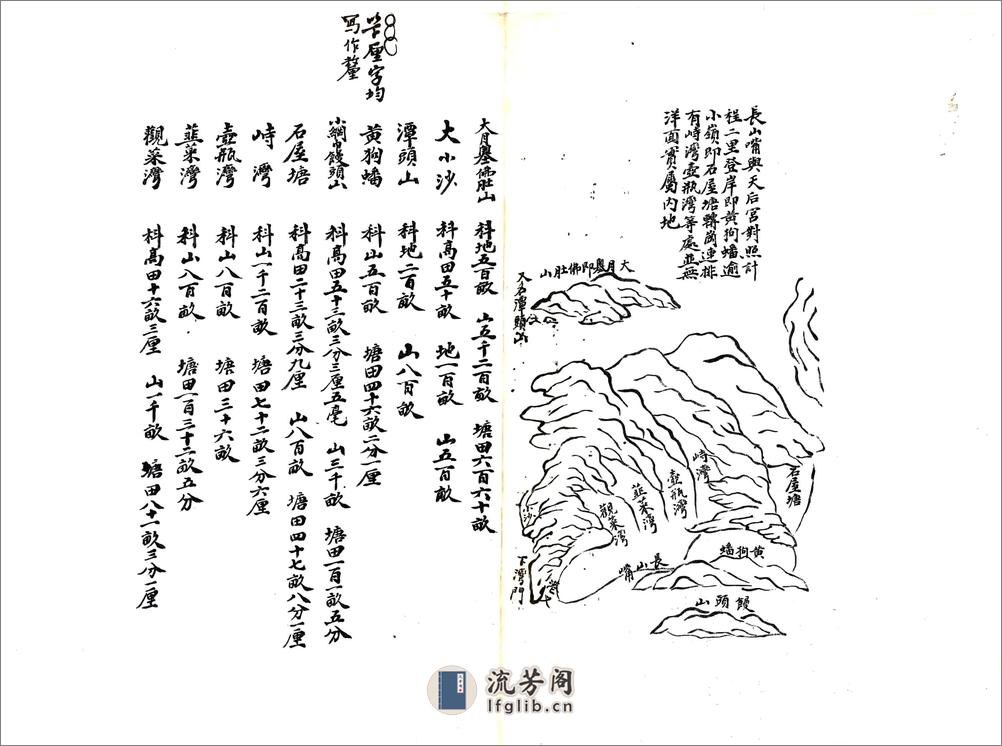 長山嘴與天后宮對照計
程二里登岸即黃狗蟠逾
小嶺即石屋塘轉崗連排
有峙灣壺瓶灣等處並無
洋面實屬內地
大月墨即佛肚山
又名潭頭山
石屋塘
峙灣
壺瓶灣
韮菜灣
觀菜灣
小沙
大沙
下灣門
長山嘴
黃狗蟠
饅頭山
大月墨佛肚山 科地五百畝 山五千二百畝 塘田六百六十畝
大小沙 科高田五十畝 地一百畝 山五百畝
潭頭山 科地二百畝 山八百畝
黃狗蟠 科山五百畝 塘田四十六畝二分一厘
小網山饅頭山 科高田五十三畝三分三厘五毫 山三千畝 塘田一百一畝五分
石屋塘 科高田二十三畝三分九厘 山八百畝 塘田四十七畝八分一厘
峙灣 科山一千二百畝 塘田七十二畝三分六厘
壺瓶灣 科山八百畝 塘田三十六畝
韮菜灣 科山八百畝 塘田一百三十二畝五分
觀菜灣 科高田十六畝三厘 山一千畝 塘田八十一畝三分一厘
厘字均
寫作釐
流芳阁
lfglib.cn